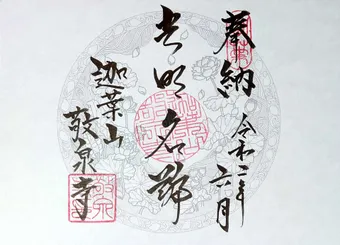 奉納
令和二年
六月
光明名號
迦葉山
敬泉寺